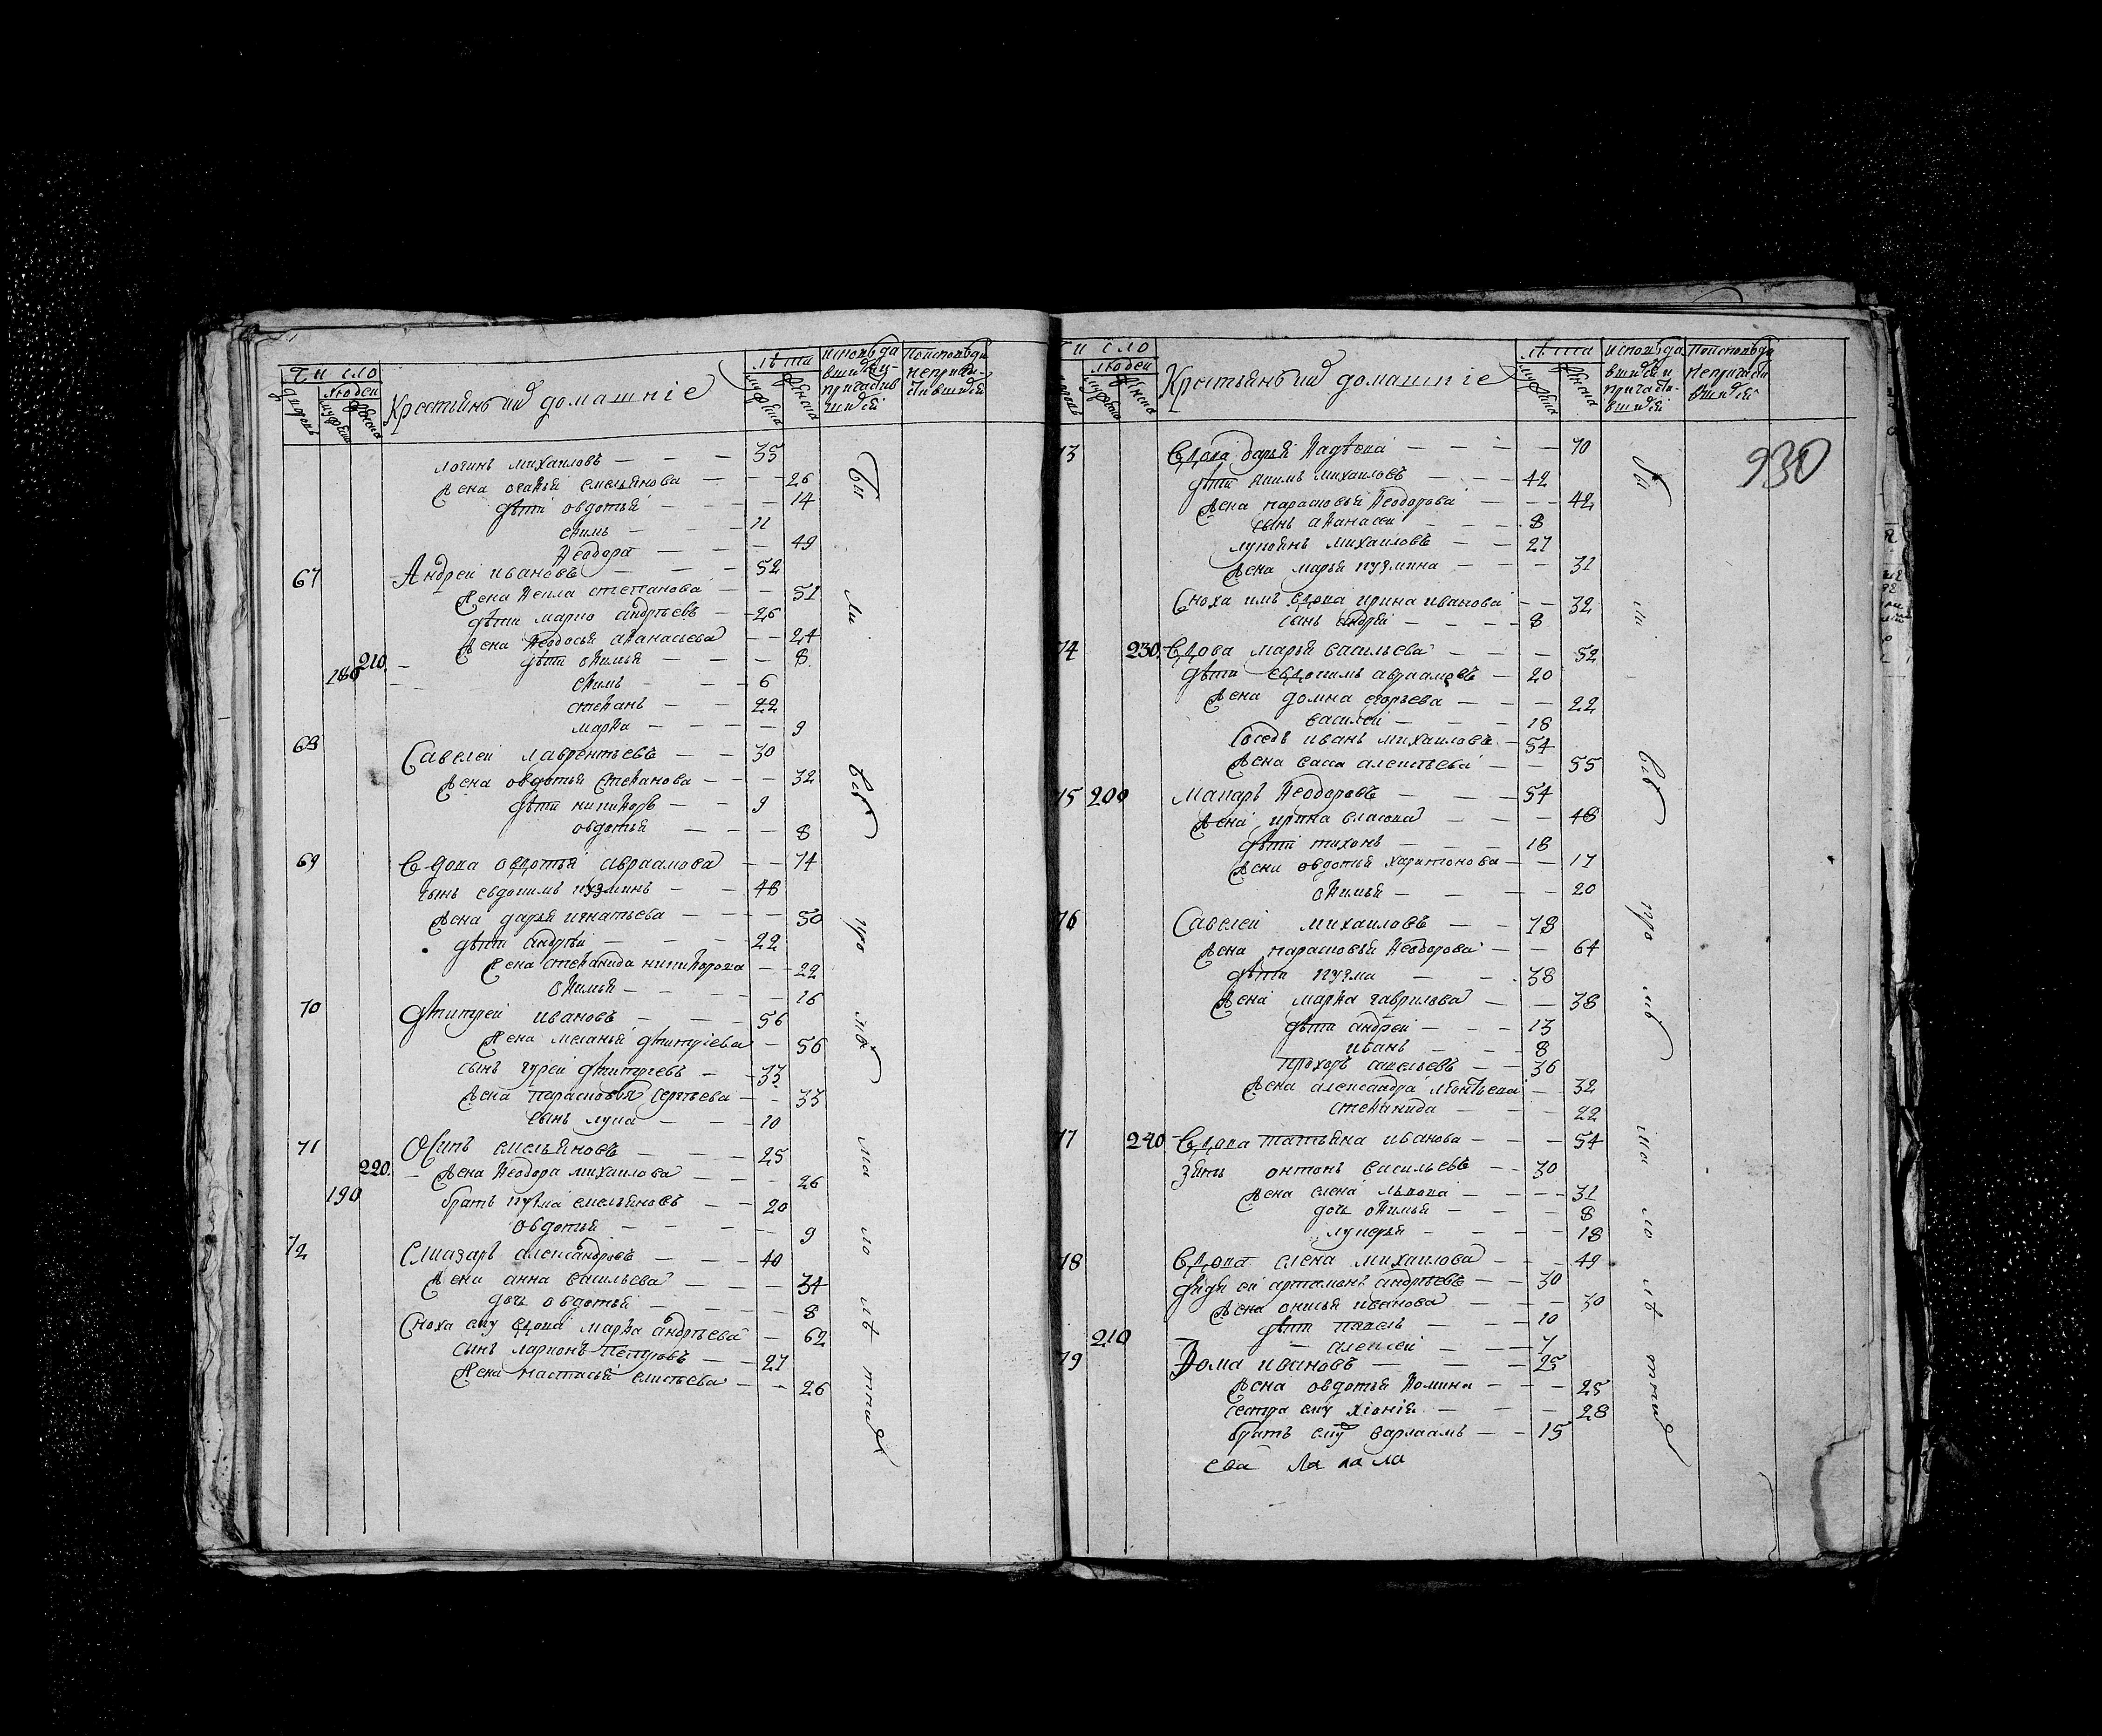 Число
людеи
лѣта
Крестьяня и ихъ домашнiе
логинъ михаиловъ — — — 35
жена огаѳья емельянова — — — 26
дѣти овдотья — — — 14
еѳимъ — — — 11
ѳеодора — — — 49
67 Андреи ивановъ — — — 52
жена ѳекла степанова — — 51
дѣти марко андрѣевъ — 26
жена ѳеодосья аѳанасьева — — 24
210 дѣти оѳимья — — — 8
180 еѳимъ — — — 6
стеѳанъ — — 22
марѳа — — — — 9
68 Савелеи лаврентьевъ — — 30
жена овдотья стеѳанова — — — 32
дѣти никиѳоръ — — 9
овдотья — — — 8
69 Вдова овдотья авраамова — — 74
сынъ евдокимъ кузминъ — — 48
жена дарья игнатьева — — — — 50
дѣти андрѣи — — — 22
жена стеѳанида никиѳорова — — 22
оѳимья — — — — — 16
70 Дмитреи ивановъ — — — 56
жена меланья дмитрiева — 56
сынъ гуреи дмитреевъ — — 33
жена парасковья сергѣева — — 33
сынъ лука — — — 10
71 Осипъ емельяновъ — — — 25
220 жена ѳеодора михаилова — — — 26
190 братъ кузма емельяновъ — — 20
овдотья — — — — 9
72 Елиазаръ александровъ — — — 40
жена анна васильева — — — — 34
дочь овдотья — — — — — 8
Сноха ему вдова марѳа андрѣева — 62
сынъ ларионъ петровъ — — 27
жена настасья елисѣева — — 26
Число
людеи
лѣта
Крестьяня и ихъ домашнiе
930
73 Вдова дарья ѳадѣева — — — — 70
дѣти якимъ михаиловъ — — — 42
жена парасковья ѳеодорова — — — 42
сынъ аѳанасеи — — — 8
лукоянъ михаиловъ — — 27
жена марья кузмина — — — 31
Сноха имъ вдова ирина иванова — — 32
сынъ андреи — — — — 8
74 230 Вдова марья васильева — — — — 52
дѣти евдокимъ авраамовъ — 20
жена домна егорьева — — — — 22
василеи — — — — 18
Соседъ иванъ михаиловъ — 54
жена васса алексѣева — — 55
75 200 Макаръ ѳеодоровъ — — — 54
жена ирина власова — — — — 48
дѣти тихонъ — — — 18
жена овдотья харитонова — — 17
оѳимья — — — — 20
76 Савелеи михаиловъ — — 78
жена парасковья ѳеодорова — — 64
дѣти кузма — — 38
жена марѳа гаврилова — — 38
дѣти андреи — — — 13
иванъ — — — 8
прохоръ савельевъ — — 36
жена александра леонтьева — — 32
стеѳанида — — — 22
77 240 Вдова татьяна иванова — — — — 54
Зять онтонъ васильевъ — — 30
жена елена львова — — — — 31
дочь оѳимья — — — — 8
лукерья — — — — 18
78 Вдова елена михаилова — — — 49
дядя ей артамонъ андрѣевъ — — 30
жена онисья иванова — — — 30
дѣти павелъ — — — 10
210 алексеи — — — 7
79 Ѳома ивановъ — — — — 25
жена овдотья ѳомина — — — 25
сестра ему хiонiя — — — 28
братъ ему варлаамъ — — 15